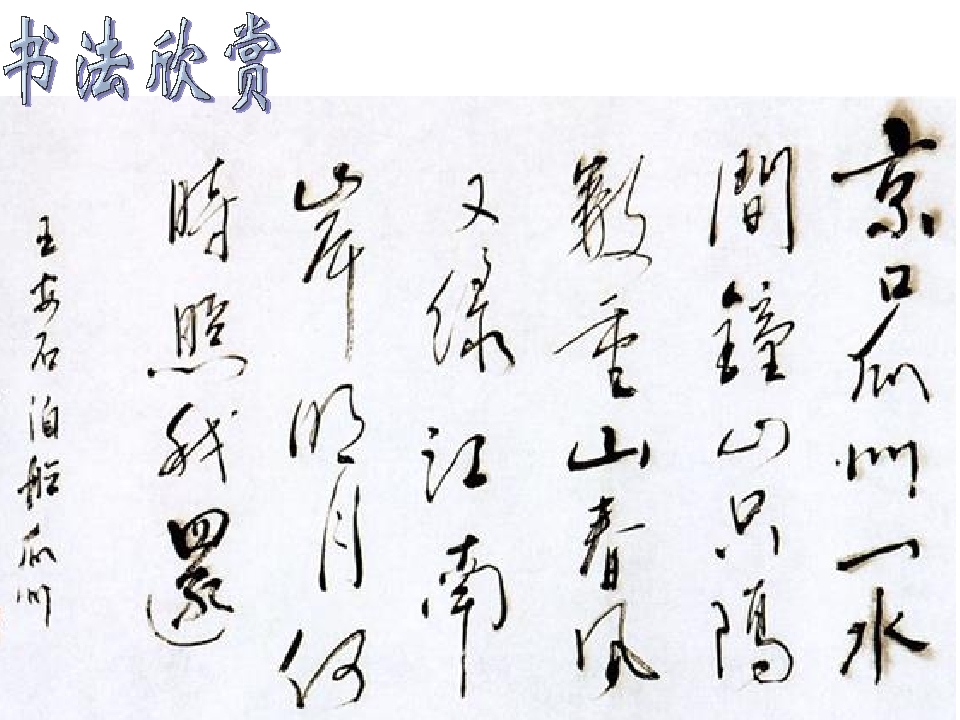 书法欣赏
京口瓜州一水
間鐘山只隔
數重山春風
又緑江南
岸明月何
時照我還
王安石泊船瓜州